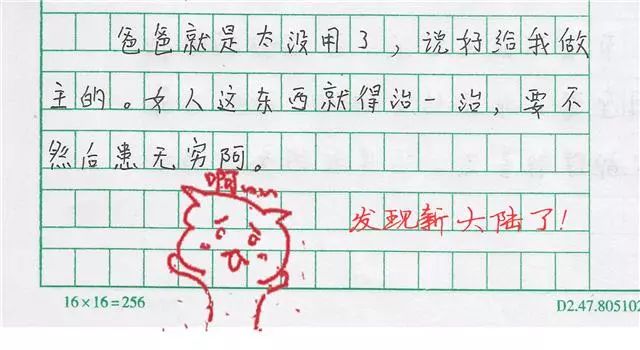 爸爸就是太没用了，说好给我做
主的。女人这东西就得治一治，要不
然后患无穷阿。
啊
发现新大陆了！
16×16=256
D2.47.805102